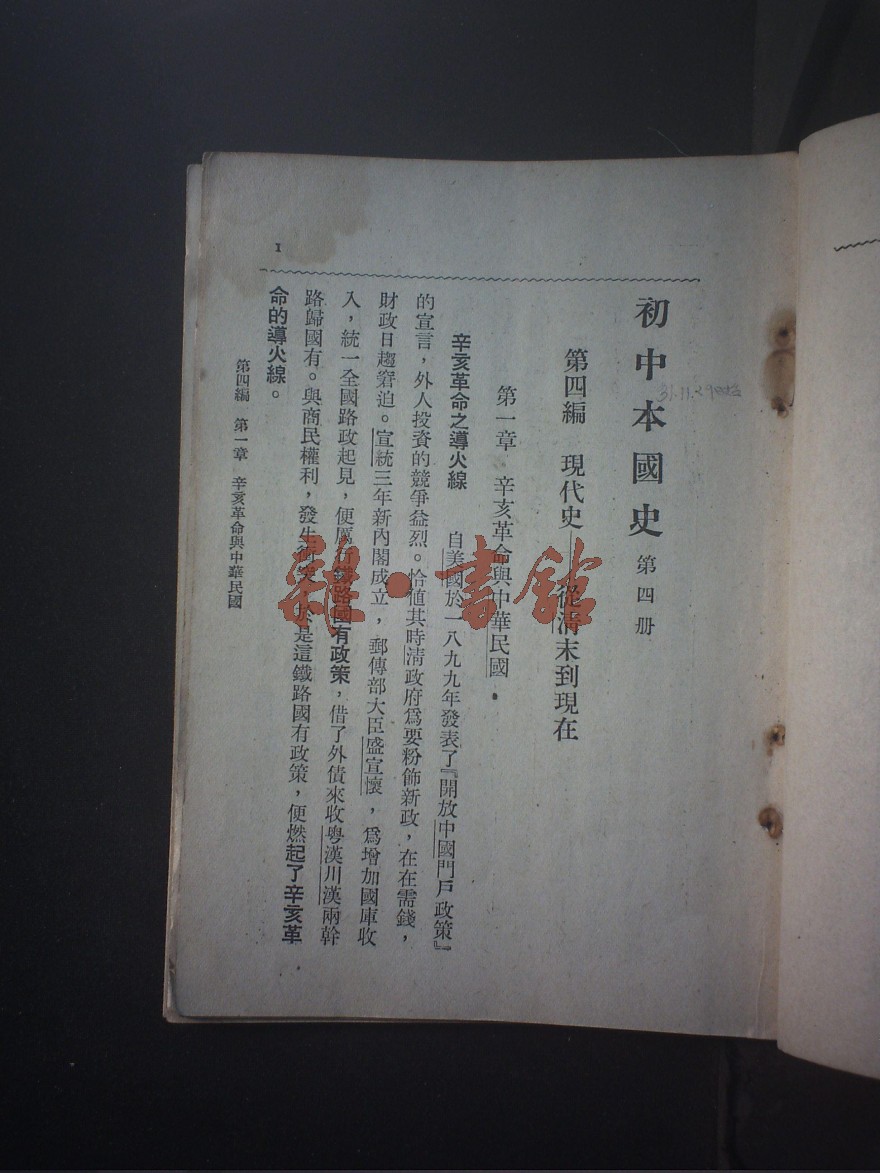 初中本國史 第四册
第四編 現代史——從淸末到現在
第一章 辛亥革命與中華民國
辛亥革命之導火線 自美國於一八九九年發表了『開放中國門戶政策』
的宣言，外人投資的競爭益烈。恰值其時淸政府爲要粉飾新政，在在需錢，
財政日趨窘迫。宣統三年新內閣成立，郵傳部大臣盛宣懷，爲增加國庫收
入，統一全國路政起見，便厲行鐵路國有政策，借了外債來收粵漢川漢兩幹
路歸國有。與商民權利，發生衝突，於是這鐵路國有政策，便燃起了辛亥革
命的導火線。
第四編 第一章 辛亥革命與中華民國
1
雜·書館